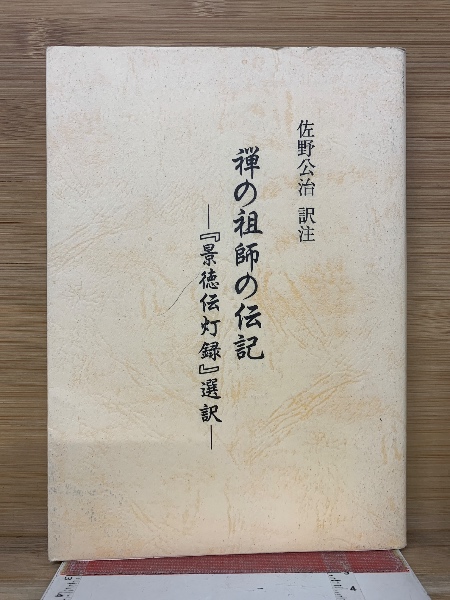 佐野公治 訳注
禅の祖師の伝記
―『景徳伝灯録』選訳―
3
4